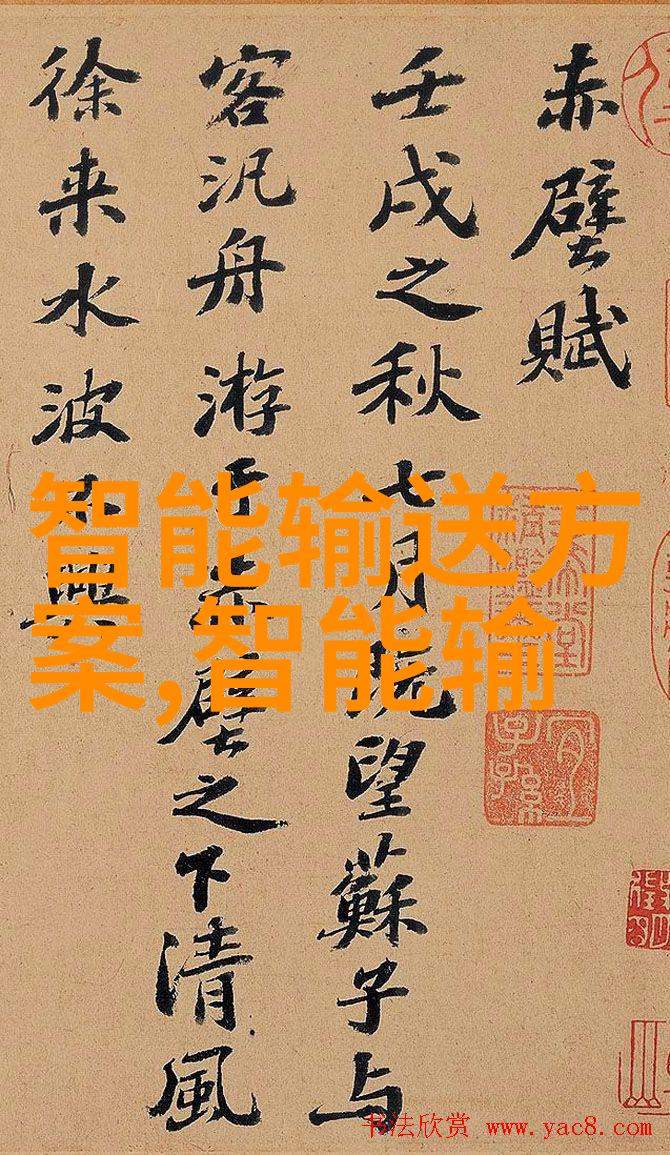 赤壁賦
壬戌之秋七月既望蘇子与
客汎舟游于赤壁之下清風
徐来水波不興
智能输送方
案,智能输
书法欣赏 www.yac8.com